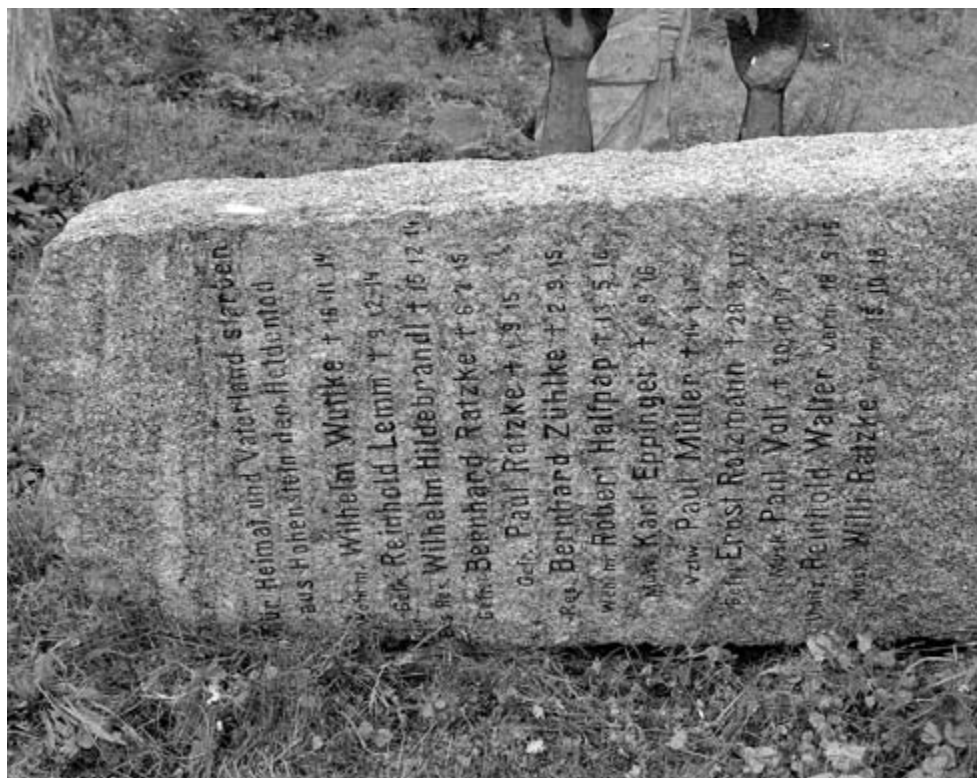 Für Heimat und Vaterland starben
aus Hohenstein den Heldentod
Wehrm. Wilhelm Wuttke † 16 11 14
Gefr. Reinhold Lemm † 9 12 14
Res. Wilhelm Hildebrandt † 16 12 14
Gefr. Bernhard Ratzke † 6 2 15
Gefr. Paul Ratzke † 1 9 15
Res. Bernhard Zühlke † 2 9 15
Wehrm. Robert Halfpap † 13 5 16
Musk. Karl Eppinger † 9 16
Vzw. Paul Müller † 14 1 17
Gefr. Ernst Ratzmann † 28 8 17
Musk. Paul Voll † 20 10 17
Reinhold Walter verm 18 9 15
Musk. Willi Ratzke verm 15 10 18